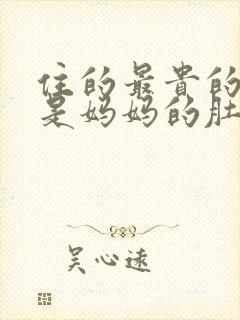 住的最贵的
是妈妈的肚
吴心远